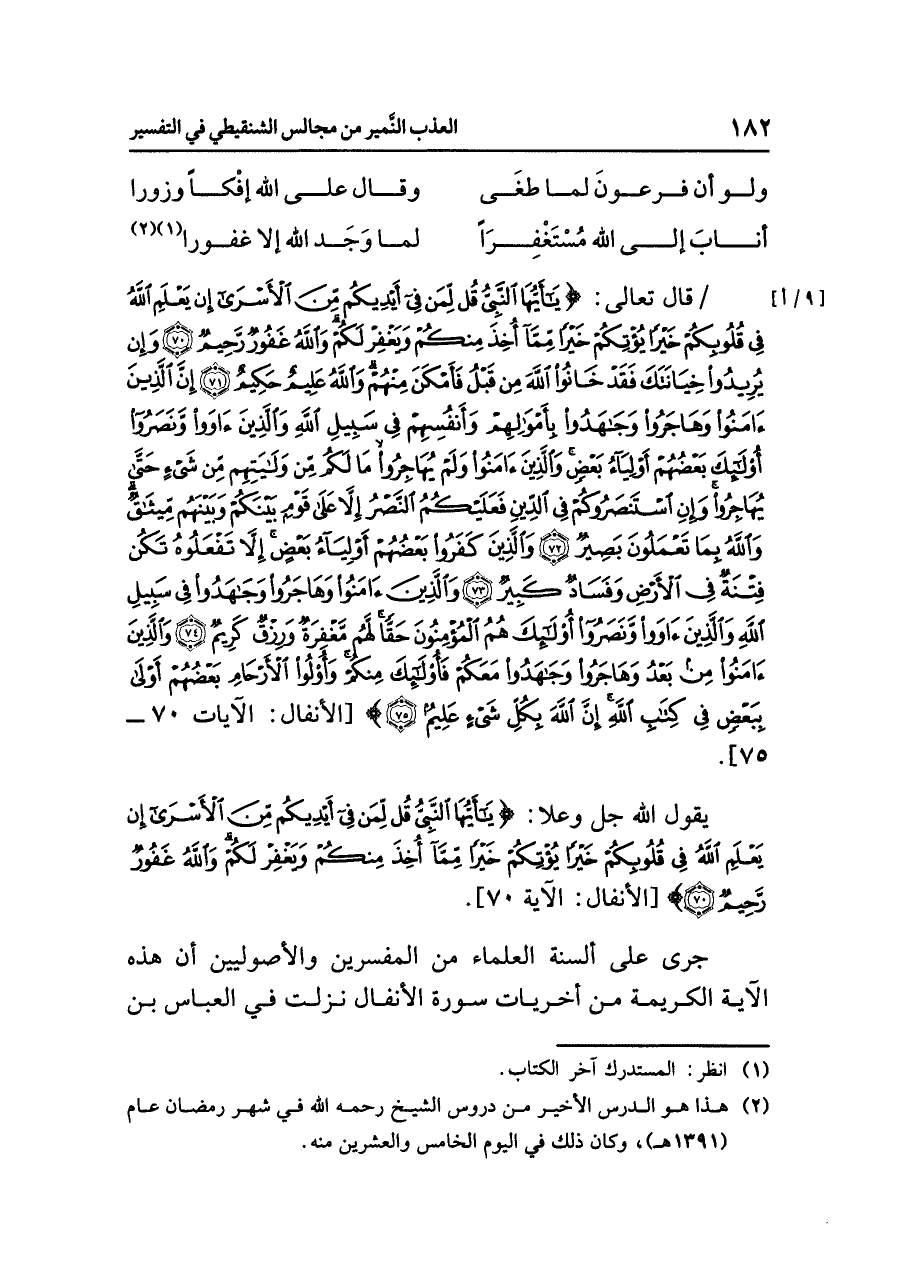 ١٨٢ العذب النَّمير من مجالس الشنقيطي في التفسير
ولو أن فرعونَ لما طغَى وقال على الله إفْكاً وزورا
أنابَ إلى الله مُسْتَغْفِرَاً لما وَجَد الله إلا غفورا(١)(٢)
[٩/أ] / قال تعالى: ﴿يَٰٓأَيُّهَا ٱلنَّبِىُّ قُل لِّمَن فِىٓ أَيْدِيكُم مِّنَ ٱلْأَسْرَىٰٓ إِن يَعْلَمِ ٱللَّهُ
فِى قُلُوبِكُمْ خَيْرًا يُؤْتِكُمْ خَيْرًا مِّمَّآ أُخِذَ مِنكُمْ وَيَغْفِرْ لَكُمْ ۗ وَٱللَّهُ غَفُورٌ رَّحِيمٌ ٧٠ وَإِن
يُرِيدُوا۟ خِيَانَتَكَ فَقَدْ خَانُوا۟ ٱللَّهَ مِن قَبْلُ فَأَمْكَنَ مِنْهُمْ ۗ وَٱللَّهُ عَلِيمٌ حَكِيمٌ ٧١ إِنَّ ٱلَّذِينَ
ءَامَنُوا۟ وَهَاجَرُوا۟ وَجَٰهَدُوا۟ بِأَمْوَٰلِهِمْ وَأَنفُسِهِمْ فِى سَبِيلِ ٱللَّهِ وَٱلَّذِينَ ءَاوَوا۟ وَّنَصَرُوٓا۟
أُو۟لَٰٓئِكَ بَعْضُهُمْ أَوْلِيَآءُ بَعْضٍ ۚ وَٱلَّذِينَ ءَامَنُوا۟ وَلَمْ يُهَاجِرُوا۟ مَا لَكُم مِّن وَلَٰيَتِهِم مِّن شَىْءٍ حَتَّىٰ
يُهَاجِرُوا۟ ۚ وَإِنِ ٱسْتَنصَرُوكُمْ فِى ٱلدِّينِ فَعَلَيْكُمُ ٱلنَّصْرُ إِلَّا عَلَىٰ قَوْمٍۭ بَيْنَكُمْ وَبَيْنَهُم مِّيثَٰقٌ ۗ
وَٱللَّهُ بِمَا تَعْمَلُونَ بَصِيرٌ ٧٢ وَٱلَّذِينَ كَفَرُوا۟ بَعْضُهُمْ أَوْلِيَآءُ بَعْضٍ ۚ إِلَّا تَفْعَلُوهُ تَكُن
فِتْنَةٌ فِى ٱلْأَرْضِ وَفَسَادٌ كَبِيرٌ ٧٣ وَٱلَّذِينَ ءَامَنُوا۟ وَهَاجَرُوا۟ وَجَٰهَدُوا۟ فِى سَبِيلِ
ٱللَّهِ وَٱلَّذِينَ ءَاوَوا۟ وَّنَصَرُوٓا۟ أُو۟لَٰٓئِكَ هُمُ ٱلْمُؤْمِنُونَ حَقًّا ۚ لَّهُم مَّغْفِرَةٌ وَرِزْقٌ كَرِيمٌ ٧٤ وَٱلَّذِينَ
ءَامَنُوا۟ مِنۢ بَعْدُ وَهَاجَرُوا۟ وَجَٰهَدُوا۟ مَعَكُمْ فَأُو۟لَٰٓئِكَ مِنكُمْ ۚ وَأُو۟لُوا۟ ٱلْأَرْحَامِ بَعْضُهُمْ أَوْلَىٰ
بِبَعْضٍ فِى كِتَٰبِ ٱللَّهِ ۗ إِنَّ ٱللَّهَ بِكُلِّ شَىْءٍ عَلِيمٌۢ ٧٥﴾ [الأنفال: الآيات ٧٠ ــ
٧٥].
يقول الله جل وعلا: ﴿يَٰٓأَيُّهَا ٱلنَّبِىُّ قُل لِّمَن فِىٓ أَيْدِيكُم مِّنَ ٱلْأَسْرَىٰٓ إِن
يَعْلَمِ ٱللَّهُ فِى قُلُوبِكُمْ خَيْرًا يُؤْتِكُمْ خَيْرًا مِّمَّآ أُخِذَ مِنكُمْ وَيَغْفِرْ لَكُمْ ۗ وَٱللَّهُ غَفُورٌ
رَّحِيمٌ ٧٠﴾ [الأنفال: الآية ٧٠].
جرى على ألسنة العلماء من المفسرين والأصوليين أن هذه
الآية الكريمة من أخريات سورة الأنفال نزلت في العباس بن
(١) انظر: المستدرك آخر الكتاب.
(٢) هذا هو الدرس الأخير من دروس الشيخ رحمه الله في شهر رمضان عام
(١٣٩١هـ)، وكان ذلك في اليوم الخامس والعشرين منه.